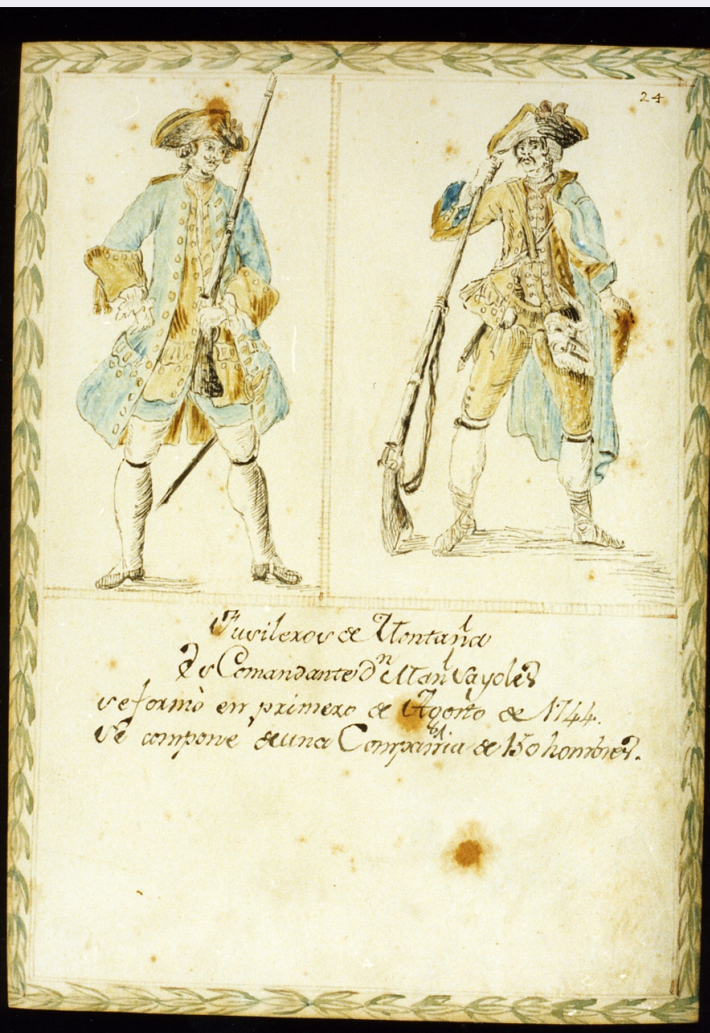 24
Fusileros de Montaña
Es Comandante Dn Manl Sayoles
se formò en primero de Agosto de 1744.
se compone de una Compañia de 150 hombres.